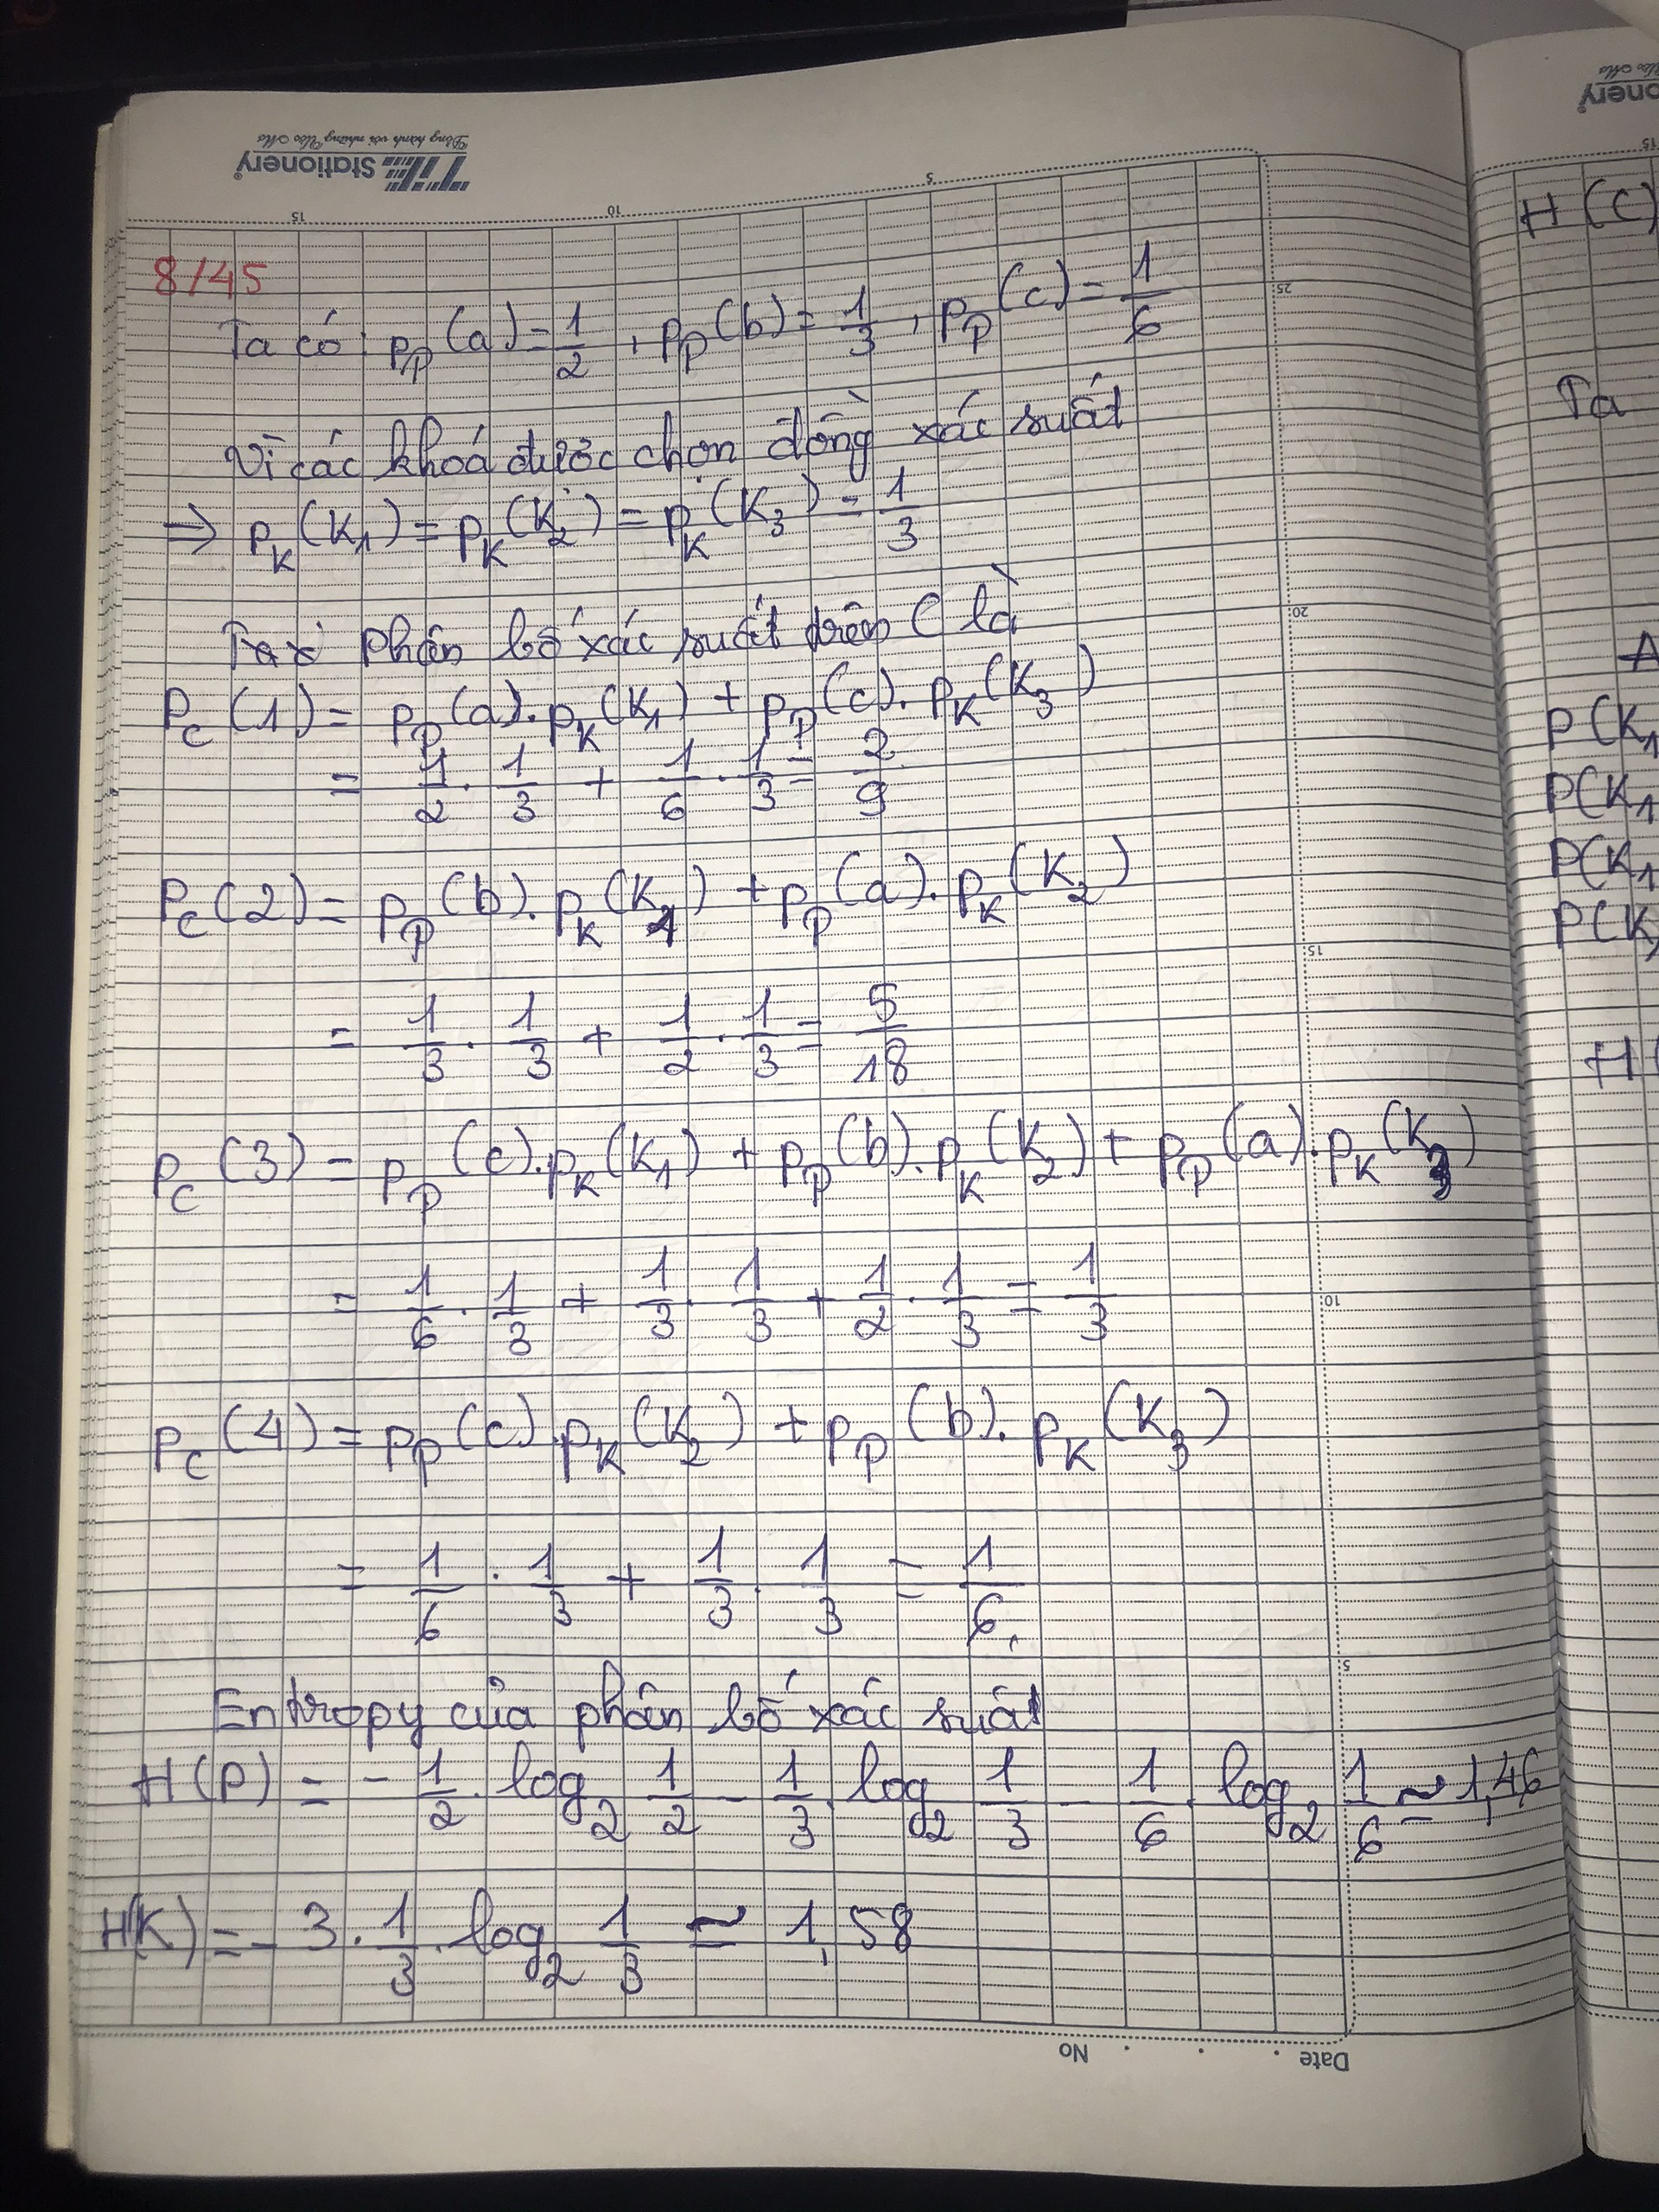 TL Stationery
Đồng hành với những Ước Mơ
15 10 5
8/45
Ta có: p_P(a) = 1/2, p_P(b) = 1/3, p_P(c) = 1/6
Vì các khoá được chọn đồng xác suất
⇒ p_K(K₁) = p_K(K₂) = p_K(K₃) = 1/3
Phân bố xác suất trên C là
P_C(1) = p_P(a).p_K(K₁) + p_P(c).p_K(K₃)
= 1/2 . 1/3 + 1/6 . 1/3 = 2/9
P_C(2) = p_P(b).p_K(K₁) + p_P(a).p_K(K₂)
= 1/3 . 1/3 + 1/2 . 1/3 = 5/18
p_C(3) = p_P(c).p_K(K₁) + p_P(b).p_K(K₂) + p_P(a).p_K(K₃)
= 1/6 . 1/3 + 1/3 . 1/3 + 1/2 . 1/3 = 1/3
p_C(4) = p_P(c).p_K(K₂) + p_P(b).p_K(K₃)
= 1/6 . 1/3 + 1/3 . 1/3 = 1/6
Entropy của phân bố xác suất
H(P) = - 1/2 . log₂ 1/2 - 1/3 . log₂ 1/3 - 1/6 . log₂ 1/6 ≃ 1,46
H(K) = - 3 . 1/3 . log₂ 1/3 ≃ 1,58
Date No
25
20
15
10
5
15
H(C)
Ta
P(K₁
P(K₁
P(K₁
P(K
H(